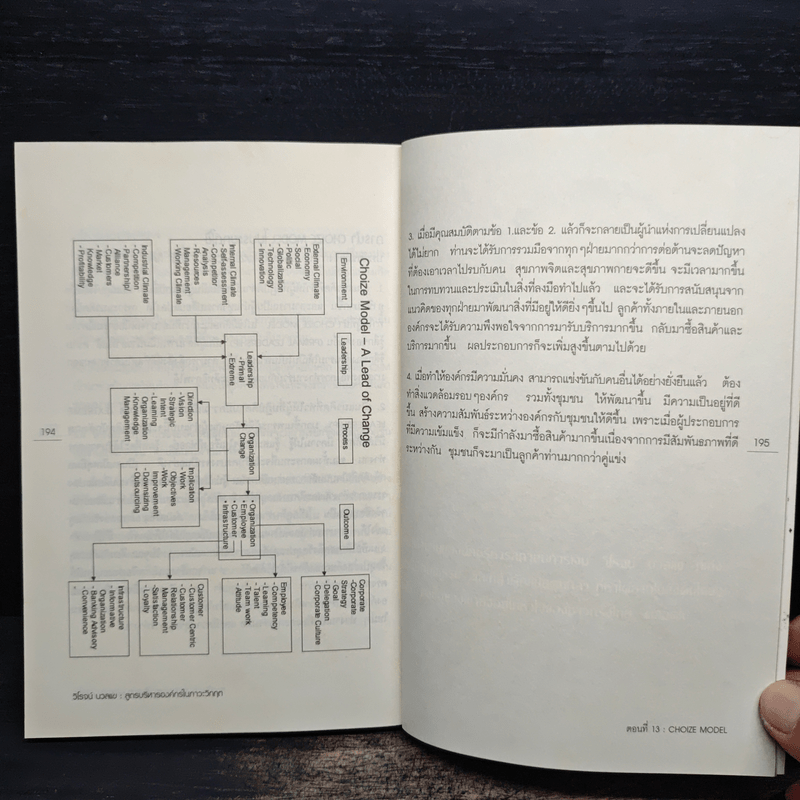 Choize Model – A Lead of Change
Environment
Leadership
Process
Outcome
External Climate
- Economy
- Social
- Politic
- Globalization
- Technology
- Innovation
Internal Climate
- Self-assessment
- Competitor
Analysis
- Resources
Management
- Working Climate
Industrial Climate
- Competition
- Partnership/
Alliance
- Customers
- Market
Knowledge
- Profitability
Leadership
- Primal
- Extreme
Organization
Change
Direction
- Vision
- Strategic
Intent
- Learning
Organization
- Knowledge
Management
Implication
- Work
Objectives
- Work
Improvement
- Downsizing
- Outsourcing
• Organization
• Employee
• Customer
• Infrastructure
Corporate
- Corporate
Strategy
- Goal
- Delegation
- Corporate Culture
Employee
- Competency
- Learning
- Talent
- Team work
- Attitude
Customer
- Customer Centric
- Customer
Relationship
Management
- Satisfaction
- Loyalty
Infrastructure
- Informative
Organization
- Banking Advisory
- Convenience
194
วิโรจน์ นวลแข : สูตรบริหารองค์กรในภาวะวิกฤต
3. เมื่อมีคุณสมบัติตามข้อ 1.และข้อ 2. แล้วก็จะกลายเป็นผู้นำแห่งการเปลี่ยนแปลง
ได้ไม่ยาก ท่านจะได้รับการร่วมมือจากทุกๆฝ่ายมากกว่าการต่อต้านจะลดปัญหา
ที่ต้องเอาเวลาไปรบกับคน สุขภาพจิตและสุขภาพกายจะดีขึ้น จะมีเวลามากขึ้น
ในการทบทวนและประเมินในสิ่งที่ลงมือทำไปแล้ว และจะได้รับการสนับสนุนจาก
แนวคิดของทุกฝ่ายมาพัฒนาสิ่งที่มีอยู่ให้ดียิ่งๆขึ้นไป ลูกค้าทั้งภายในและภายนอก
องค์กรจะได้รับความพึงพอใจจากการมารับบริการมากขึ้น กลับมาซื้อสินค้าและ
บริการมากขึ้น ผลประกอบการก็จะเพิ่มสูงขึ้นตามไปด้วย
4. เมื่อทำให้องค์กรมีความมั่นคง สามารถแข่งขันกับคนอื่นได้อย่างยั่งยืนแล้ว ต้อง
ทำสิ่งแวดล้อมรอบๆองค์กร รวมทั้งชุมชน ให้พัฒนาขึ้น มีความเป็นอยู่ที่ดี
ขึ้น สร้างความสัมพันธ์ระหว่างองค์กรกับชุมชนให้ดีขึ้น เพราะเมื่อผู้ประกอบการ
ที่มีความเข้มแข็ง ก็จะมีกำลังมาซื้อสินค้ามากขึ้นเนื่องจากการมีสัมพันธภาพที่ดี
ระหว่างกัน ชุมชนก็จะมาเป็นลูกค้าท่านมากกว่าคู่แข่ง
195
ตอนที่ 13 : CHOIZE MODEL